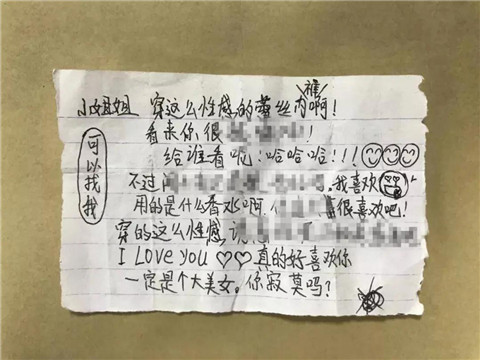 小姐姐 穿这么性感的蕾丝内裤啊！
看来你很
给谁看呢！哈哈哈！！！
可以找我
不过 我喜欢
用的是什么香水啊. 很喜欢吧！
穿的这么性感说
I Love you ♡♡真的好喜欢你
一定是个大美女。你寂寞吗？